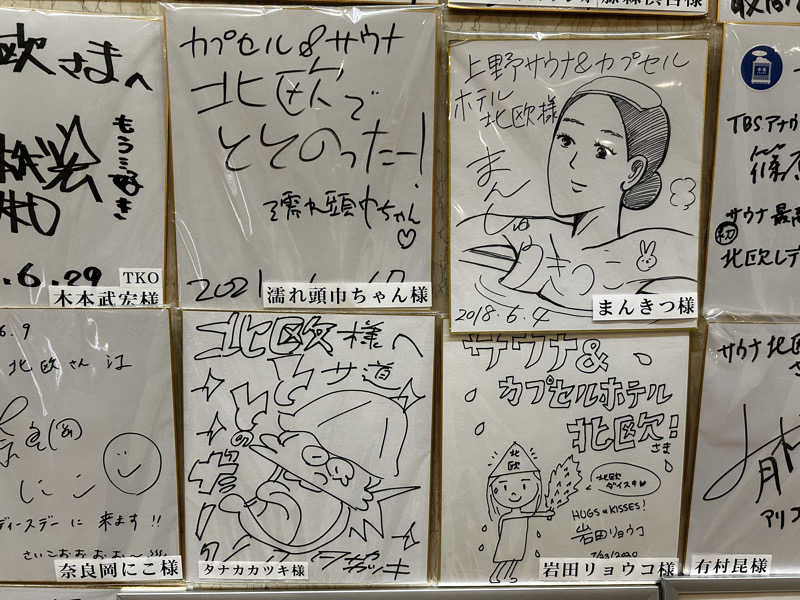 欧さまへ
もう三好き
.6.29
TKO
木本武宏様
カプセル&サウナ
北欧で
ととのったー!
濡れ頭巾ちゃん♡
2021
濡れ頭巾ちゃん様
上野サウナ&カプセル
ホテル
北欧様
まんきつ
2018.6.4
まんきつ様
TBSアナウ
サウナ最高
北欧レデ
6.9
北欧さんは
にこ
ディースデーに来ます!!
さいこおおおお〜
奈良岡にこ様
北欧様へ
サ道
タナカカツキ
タナカカツキ様
サウナ&
カプセルホテル
北欧!
さま
北欧
北欧
ダイスキ♥
HUGS & KISSES!
岩田リョウコ
7/23/2020
岩田リョウコ様
サウナ北欧
さ
有村
アリコ
有村昆様